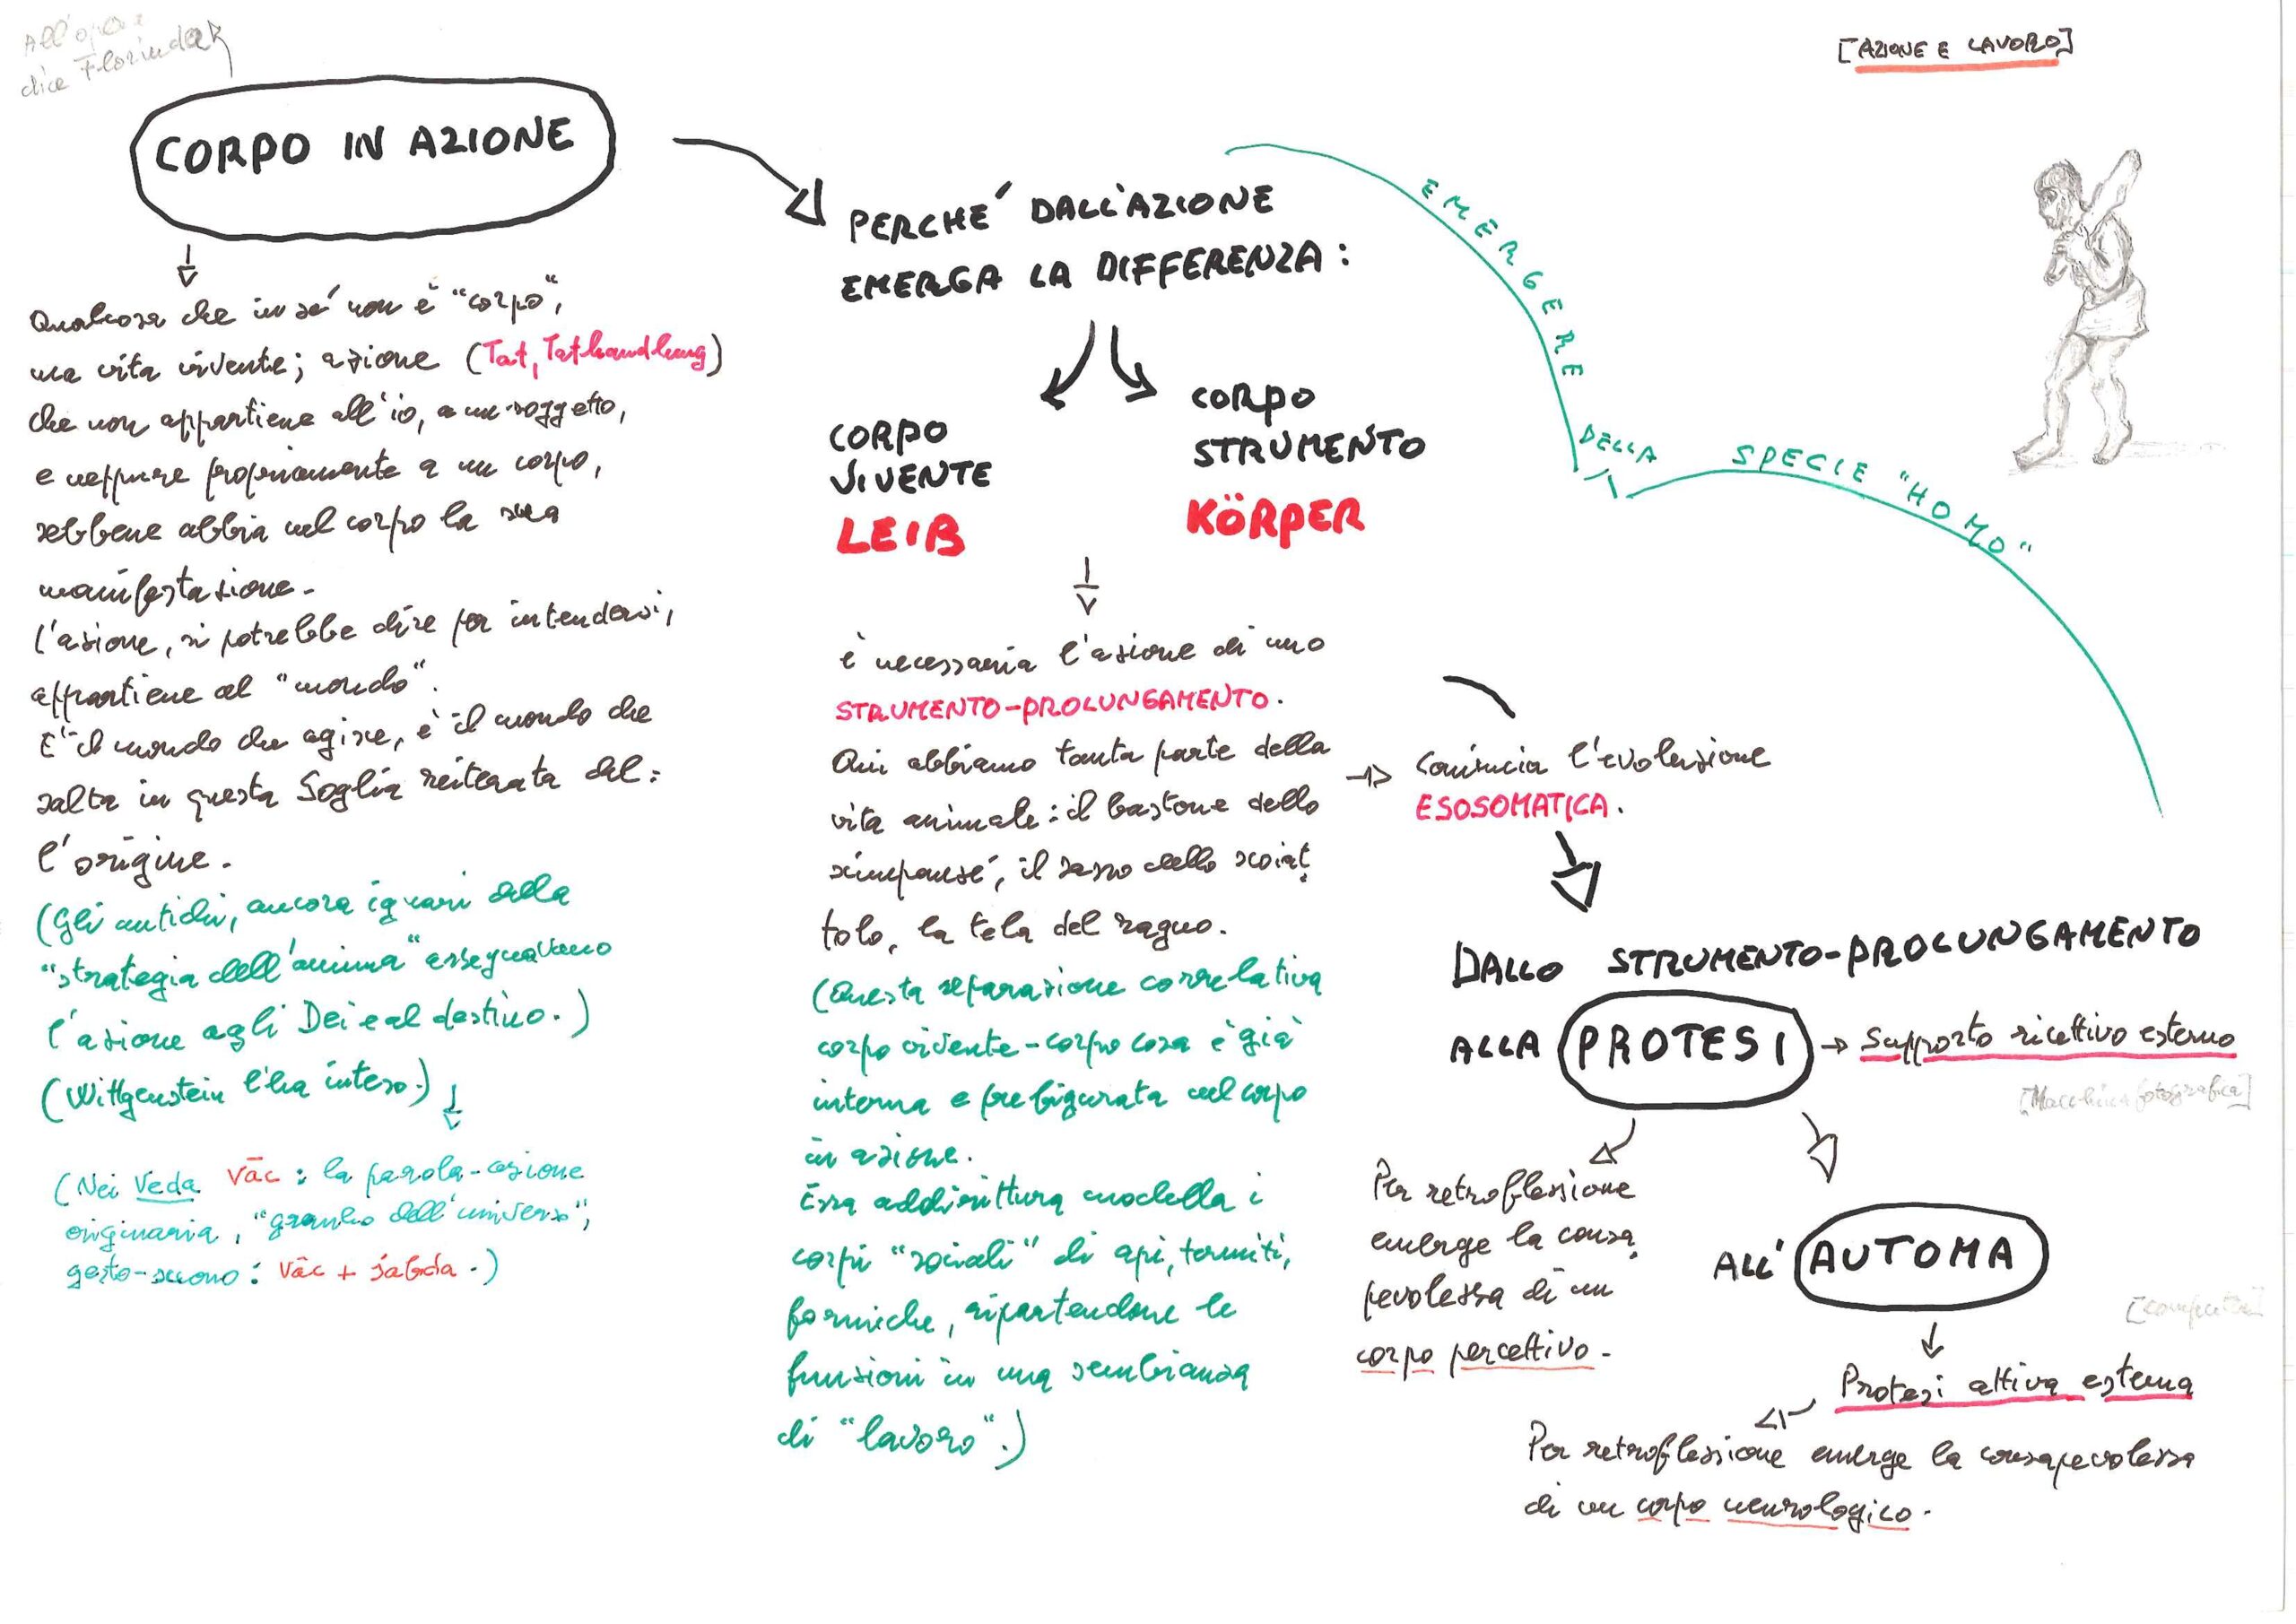 All'opera
dice Florinda
[AZIONE E LAVORO]
CORPO IN AZIONE
Qualcosa che in sé non è "corpo",
ma vita vivente; azione (Tat, Tathandlung)
che non appartiene all'io, a un soggetto,
e neppure propriamente a un corpo,
sebbene abbia nel corpo la sua
manifestazione.
L'azione, si potrebbe dire per intendersi,
appartiene al "mondo".
E' il mondo che agisce, è il mondo che
salta in questa Soglia reiterata del=
l'origine.
(Gli antichi, ancora ignari della
"strategia dell'anima" assegnavano
l'azione agli Dei e al destino.)
(Wittgenstein l'ha inteso.)
(Nei Veda Vāc: la parola-azione
originaria, "grembo dell'universo",
gesto-suono: Vâc + śabda.)
PERCHE' DALL'AZIONE
EMERGA LA DIFFERENZA:
CORPO
VIVENTE
LEIB
CORPO
STRUMENTO
KÖRPER
è necessaria l'azione di uno
STRUMENTO-PROLUNGAMENTO.
Qui abbiamo tanta parte della
vita animale: il bastone dello
scimpanzé, il sasso dello scoiat
tolo, la tela del ragno.
(Questa separazione correlativa
corpo vivente-corpo cosa è già
interna e prefigurata nel corpo
in azione.
Essa addirittura modella i
corpi "sociali" di api, termiti,
formiche, ripartendone le
funzioni in una sembianza
di "lavoro".)
EMERGERE DELLA SPECIE "HOMO"
Comincia l'evoluzione
ESOSOMATICA.
DALLO STRUMENTO-PROLUNGAMENTO
ALLA PROTESI → Supporto ricettivo esterno
[Macchina fotografica]
Per retroflessione
emerge la consa
pevolezza di un
corpo percettivo.
ALL'AUTOMA
[computer]
Protesi attiva esterna
Per retroflessione emerge la consapevolezza
di un corpo neurologico.